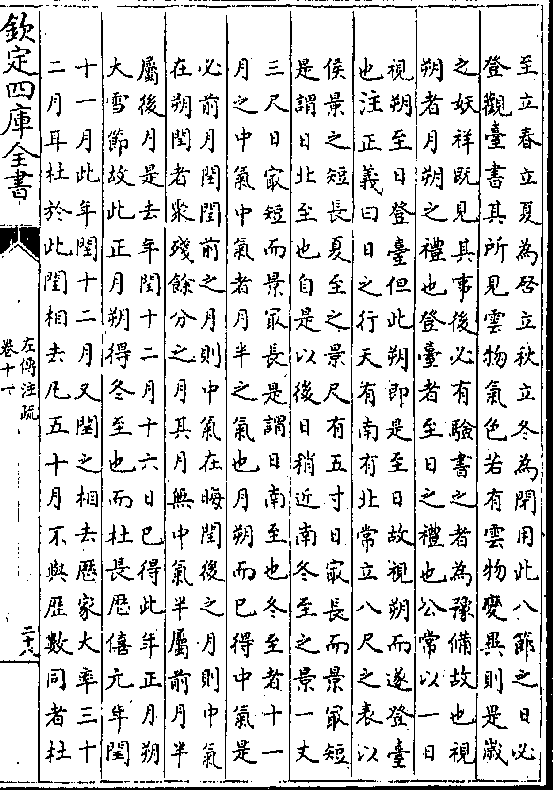 至立春立夏為啓立秋立冬為閉用此八節之日必
登觀臺書其所見雲物氣色若有雲物變異則是歲
之妖祥既見其事後必有驗書之者為豫備故也視
朔者月朔之禮也登臺者至日之禮也公常以一日
視朔至日登臺但此朔即是至日故視朔而遂登臺
也注正義曰日之行天有南有北常立八尺之表以
侯景之短長夏至之景尺有五寸日㝡長而景㝡短
是謂日北至也自是以後日稍近南冬至之景一丈
三尺日㝡短而景㝡長是謂日南至也冬至者十一
月之中氣中氣者月半之氣也月朔而已得中氣是
必前月閏閏前之月則中氣在晦閏後之月則中氣
在朔閏者聚殘餘分之月其月無中氣半屬前月半
屬後月是去年閏十二月十六日已得此年正月朔
大雪節故此正月朔得冬至也而杜長厯僖元年閏
十一月此年閏十二月又閏之相去厯家大率三十
二月耳杜於此閏相去凡五十月不與厯數同者杜
欽定四庫全書
左傳注疏
卷十一
二十八